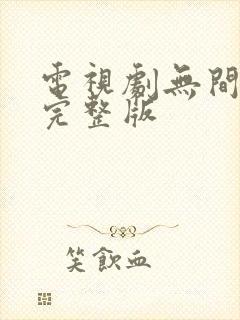 電視劇無間
完整版
笑飲血